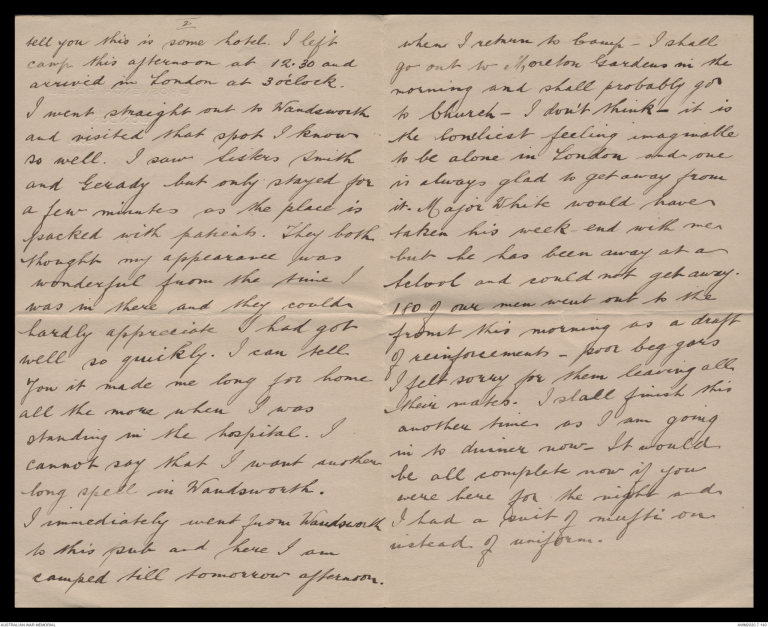 2.
tell you this is some hotel. I left
camp this afternoon at 12.30 and
arrived in London at 3 o'clock.
I went straight out to Wandsworth
and visited that spot I know
so well. I saw Sisters Smith
and Gerady but only stayed for
a few minutes as the place is
packed with patients. They both
thought my appearance was
wonderful from the time I
was in there and they could
hardly appreciate I had got
well so quickly. I can tell
you it made me long for home
all the more when I was
standing in the hospital. I
cannot say that I want another
long spell in Wandsworth.
I immediately went from Wandsworth
to this pub and here I am
camped till tomorrow afternoon.
when I return to Camp - I shall
go out to Moreton Gardens in the
morning and shall probably go
to Church - I don't think - it is
the loneliest feeling imaginable
to be alone in London and one
is always glad to get away from
it. Major White would have
taken his week-end with me
but he has been away at a
School and could not get away.
180 of our men went out to the
front this morning as a draft
of reinforcements - poor beggars
I felt sorry for them leaving all
their mates. I shall finish this
another time as I am going
in to dinner now - It would
be all complete now if you
were here for the night and
I had a suit of mufti on
instead of uniform.
AUSTRALIAN WAR MEMORIAL
AWM2020.7.140